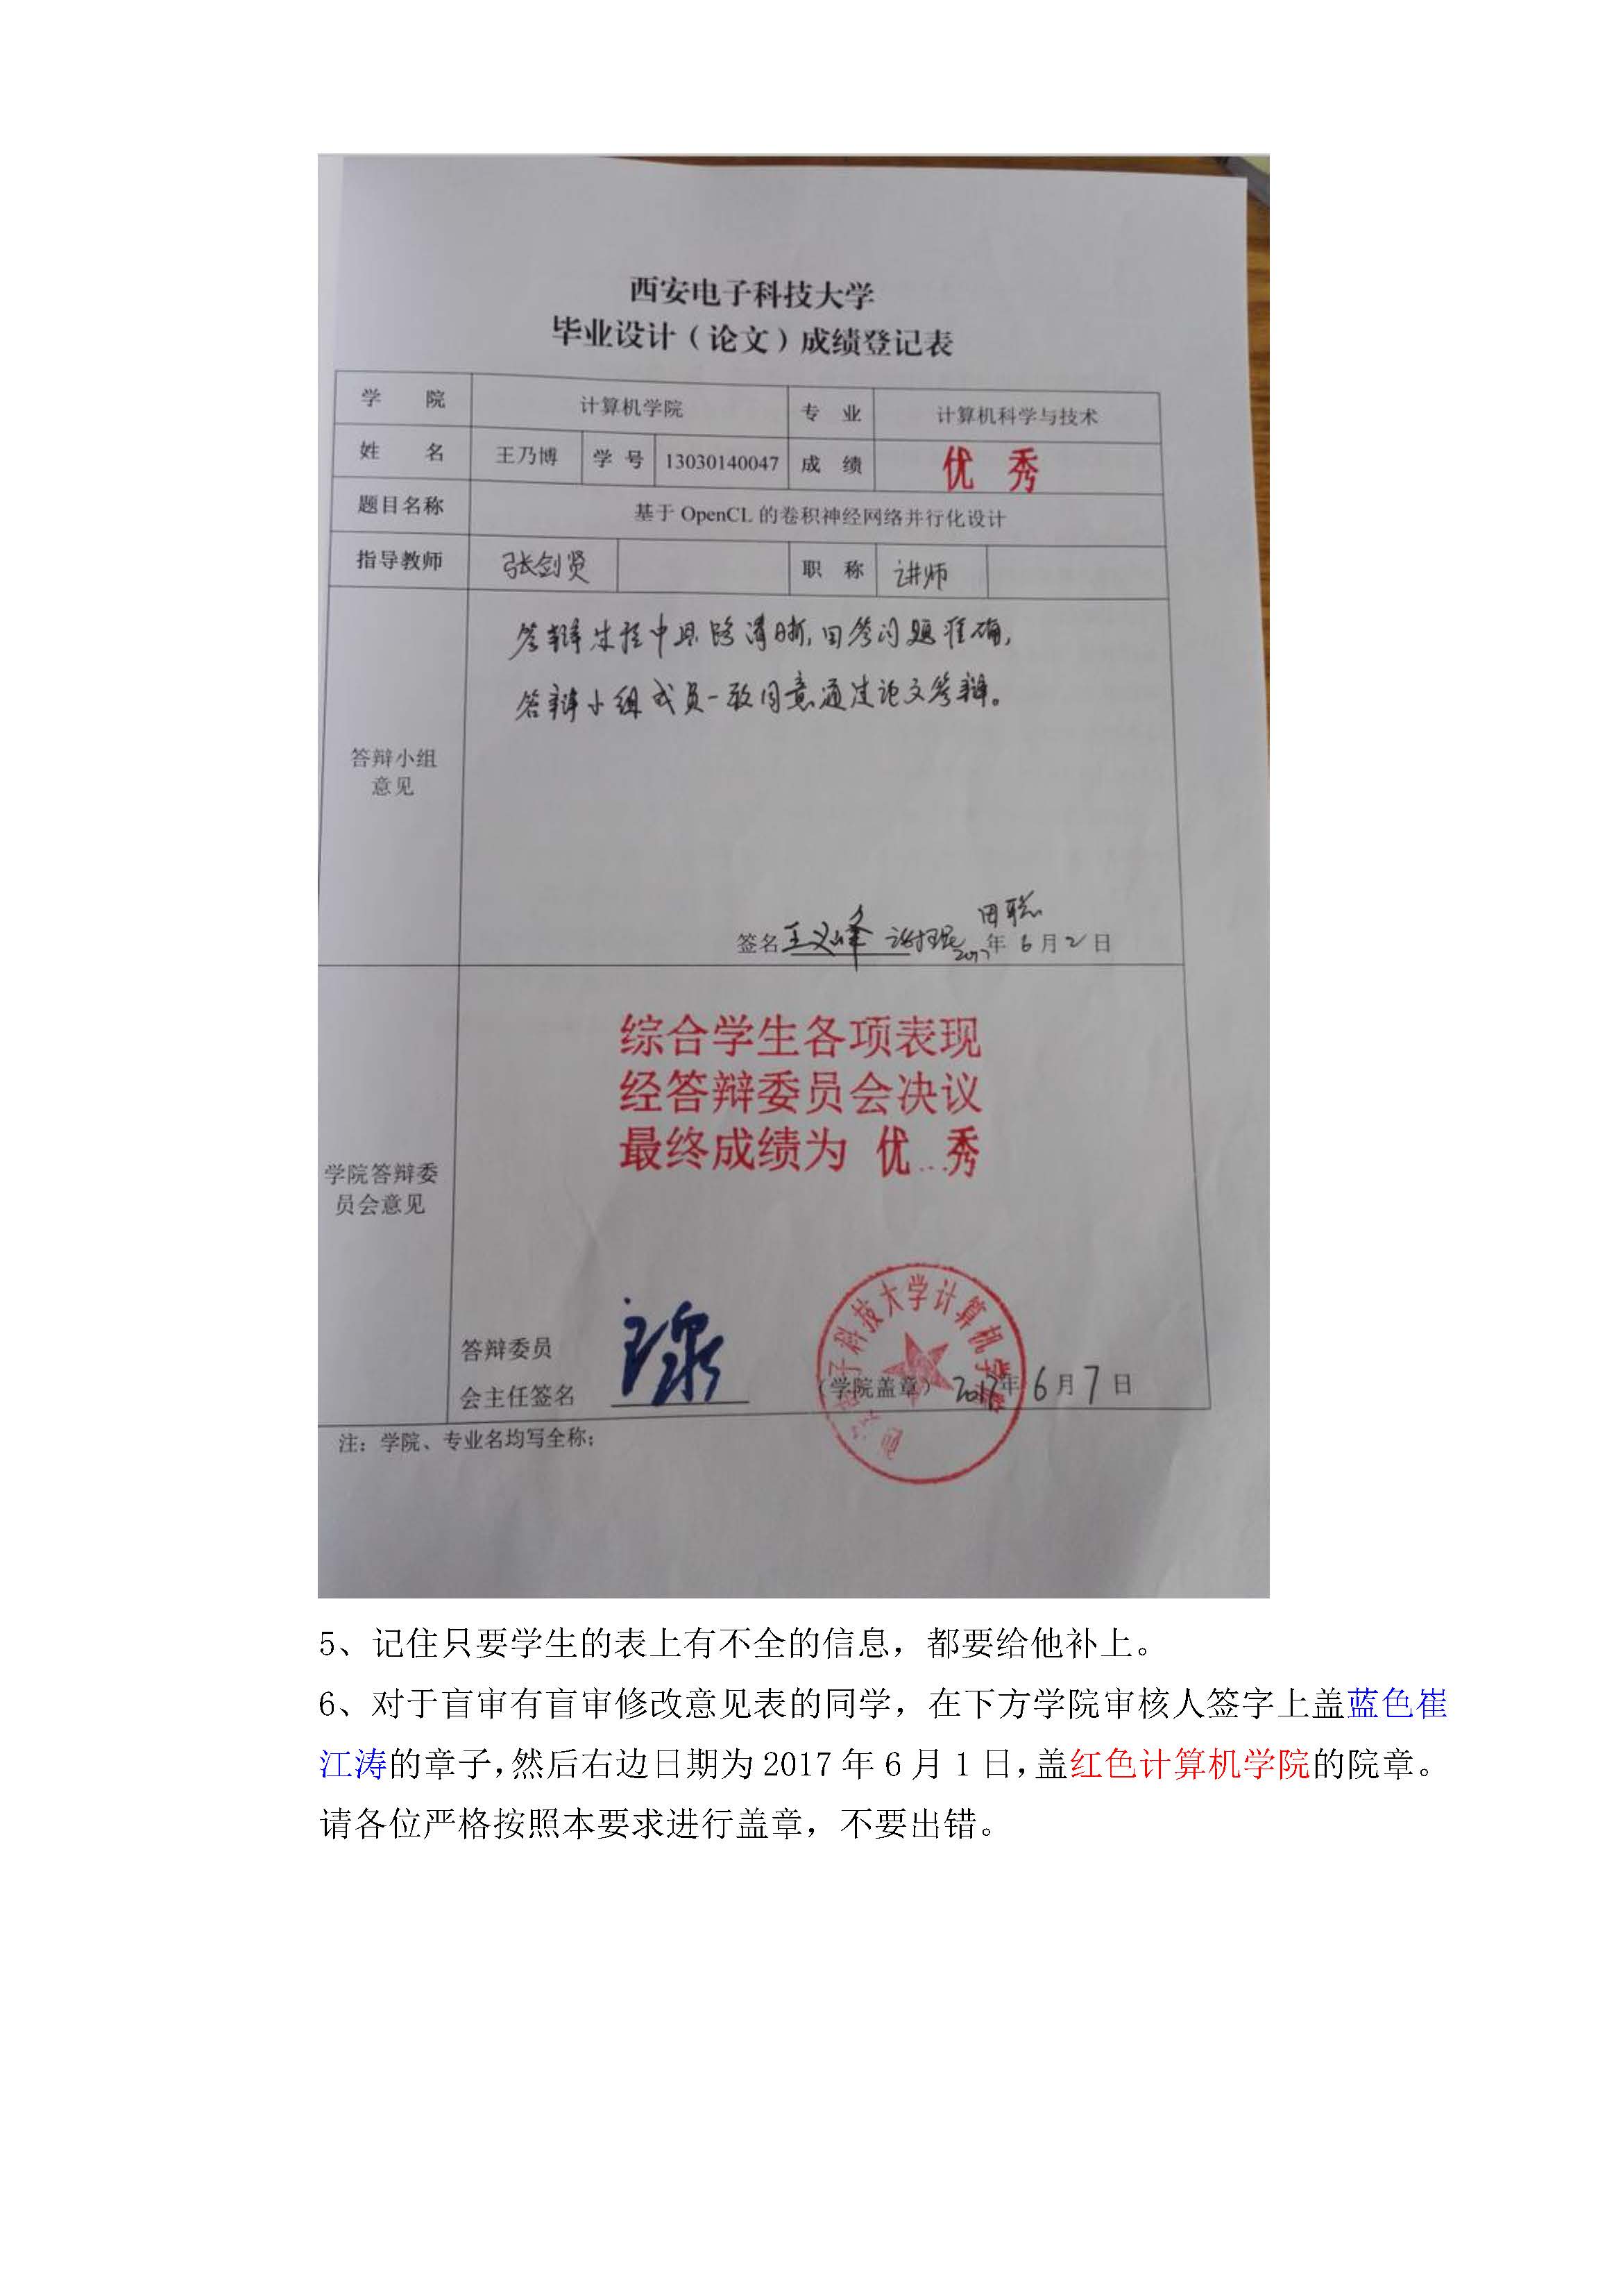 西安电子科技大学
毕业设计（论文）成绩登记表
学 院 计算机学院 专 业 计算机科学与技术
姓 名 王乃博 学 号 13030140047 成 绩 优 秀
题目名称 基于 OpenCL 的卷积神经网络并行化设计
指导教师 张剑贤 职 称 讲师
答辩过程中思路清晰,回答问题准确,
答辩小组成员一致同意通过论文答辩。
答辩小组
意见
田聪
签名 王义峰 2017年 6 月 2 日
综合学生各项表现
经答辩委员会决议
最终成绩为 优...秀
学院答辩委
员会意见
西安电子科技大学计算机学院
答辩委员
会主任签名
（学院盖章） 2017年 6 月 7 日
注：学院、专业名均写全称；
5、记住只要学生的表上有不全的信息，都要给他补上。
6、对于盲审有盲审修改意见表的同学，在下方学院审核人签字上盖蓝色崔
江涛的章子，然后右边日期为 2017 年 6 月 1 日，盖红色计算机学院的院章。
请各位严格按照本要求进行盖章，不要出错。